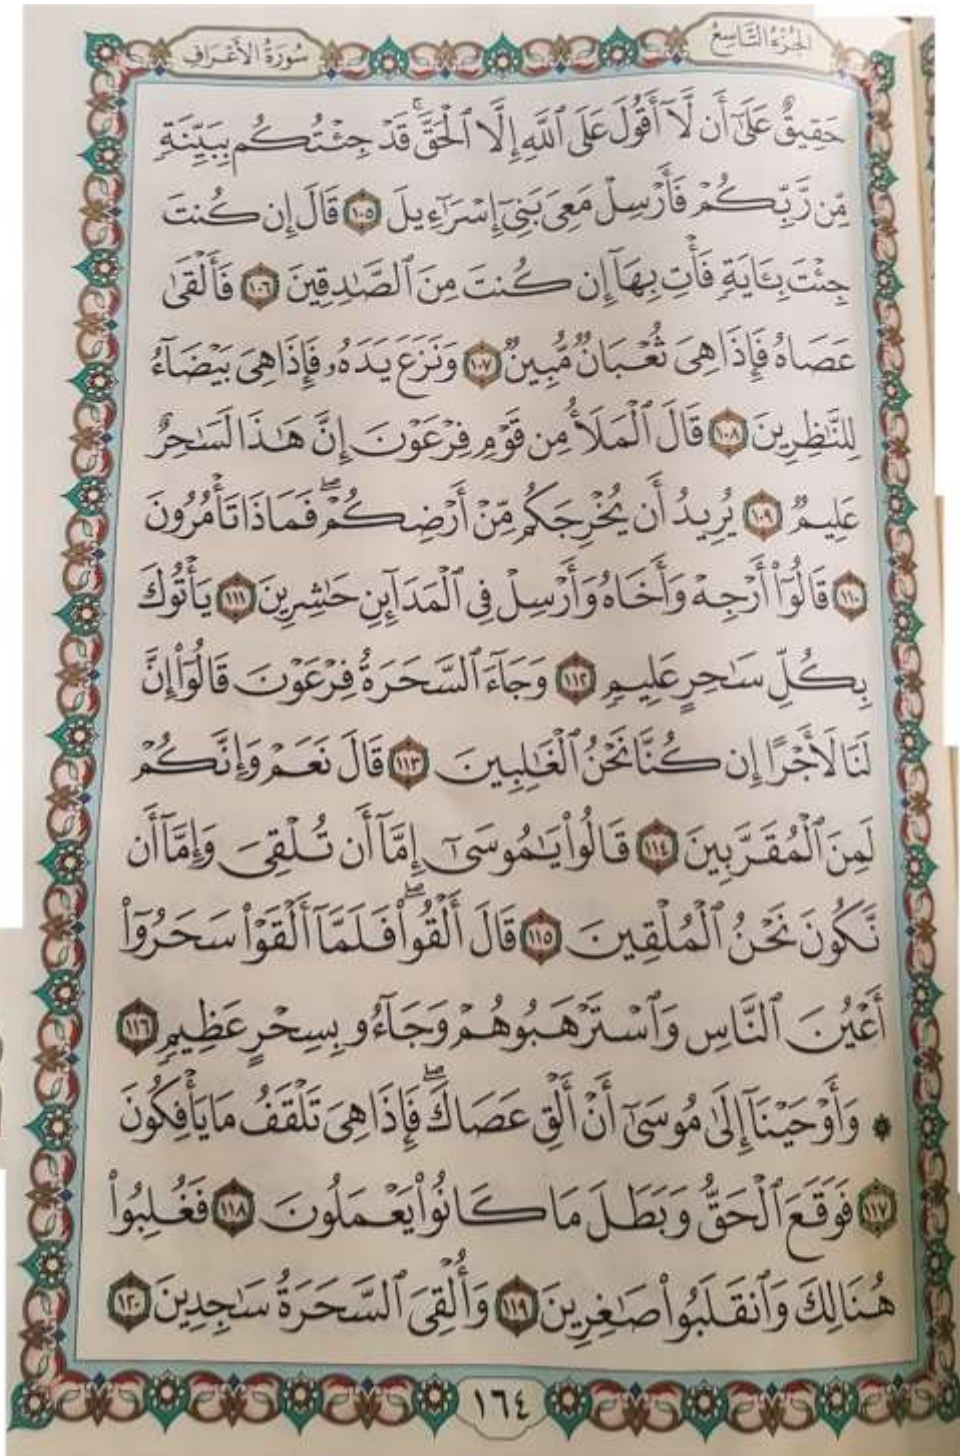 الجُزْءُ التَّاسِعُ
سُورَةُ الأَعْرَافِ
حَقِيقٌ عَلَىٰٓ أَن لَّآ أَقُولَ عَلَى ٱللَّهِ إِلَّا ٱلْحَقَّۚ قَدْ جِئْتُكُم بِبَيِّنَةٍ
مِّن رَّبِّكُمْ فَأَرْسِلْ مَعِىَ بَنِىٓ إِسْرَٰٓءِيلَ ١٠٥ قَالَ إِن كُنتَ
جِئْتَ بِـَٔايَةٍ فَأْتِ بِهَآ إِن كُنتَ مِنَ ٱلصَّٰدِقِينَ ١٠٦ فَأَلْقَىٰ
عَصَاهُ فَإِذَا هِىَ ثُعْبَانٌ مُّبِينٌ ١٠٧ وَنَزَعَ يَدَهُۥ فَإِذَا هِىَ بَيْضَآءُ
لِلنَّٰظِرِينَ ١٠٨ قَالَ ٱلْمَلَأُ مِن قَوْمِ فِرْعَوْنَ إِنَّ هَٰذَا لَسَٰحِرٌ
عَلِيمٌ ١٠٩ يُرِيدُ أَن يُخْرِجَكُم مِّنْ أَرْضِكُمْۖ فَمَاذَا تَأْمُرُونَ
١١٠ قَالُوٓا۟ أَرْجِهْ وَأَخَاهُ وَأَرْسِلْ فِى ٱلْمَدَآئِنِ حَٰشِرِينَ ١١١ يَأْتُوكَ
بِكُلِّ سَٰحِرٍ عَلِيمٍ ١١٢ وَجَآءَ ٱلسَّحَرَةُ فِرْعَوْنَ قَالُوٓا۟ إِنَّ
لَنَا لَأَجْرًا إِن كُنَّا نَحْنُ ٱلْغَٰلِبِينَ ١١٣ قَالَ نَعَمْ وَإِنَّكُمْ
لَمِنَ ٱلْمُقَرَّبِينَ ١١٤ قَالُوا۟ يَٰمُوسَىٰٓ إِمَّآ أَن تُلْقِىَ وَإِمَّآ أَن
نَّكُونَ نَحْنُ ٱلْمُلْقِينَ ١١٥ قَالَ أَلْقُوا۟ۖ فَلَمَّآ أَلْقَوْا۟ سَحَرُوٓا۟
أَعْيُنَ ٱلنَّاسِ وَٱسْتَرْهَبُوهُمْ وَجَآءُو بِسِحْرٍ عَظِيمٍ ١١٦
۞ وَأَوْحَيْنَآ إِلَىٰ مُوسَىٰٓ أَنْ أَلْقِ عَصَاكَۖ فَإِذَا هِىَ تَلْقَفُ مَا يَأْفِكُونَ
١١٧ فَوَقَعَ ٱلْحَقُّ وَبَطَلَ مَا كَانُوا۟ يَعْمَلُونَ ١١٨ فَغُلِبُوا۟
هُنَالِكَ وَٱنقَلَبُوا۟ صَٰغِرِينَ ١١٩ وَأُلْقِىَ ٱلسَّحَرَةُ سَٰجِدِينَ ١٢٠
١٦٤